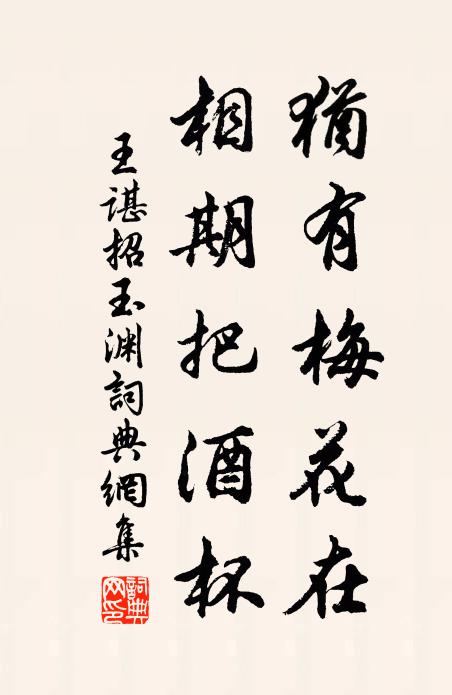 猶有梅花在
相期把酒杯
王諶招玉淵詞典網集
詞典網印